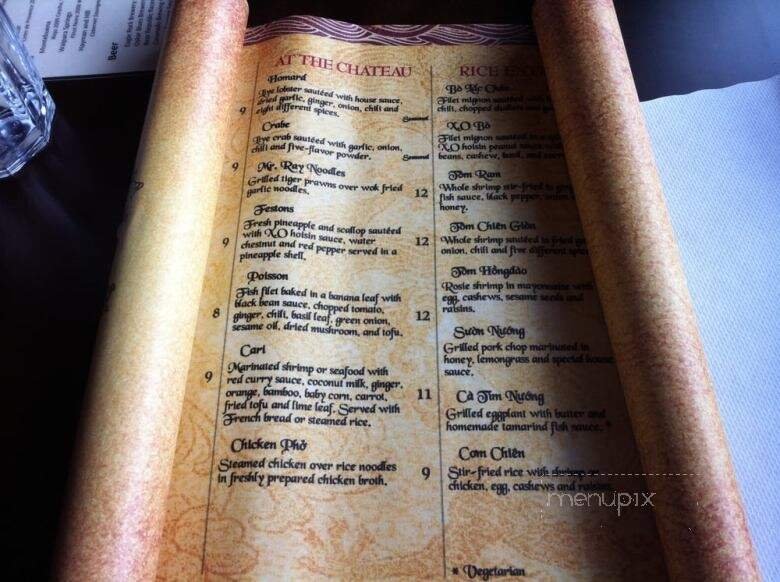 Beer
AT THE CHATEAU
Homard
Live lobster sautéed with house sauce,
dried garlic, ginger, onion, chili and
eight different spices.
Seasonal
9
Crabe
Live crab sautéed with garlic, onion,
chili and five-flavor powder.
Seasonal
9
Mr. Ray Noodles
Grilled tiger prawns over wok fried
garlic noodles.
12
Festons
Fresh pineapple and scallop sautéed
with XO hoisin sauce, water
chestnut and red pepper served in a
pineapple shell.
9
12
Poisson
Fish filet baked in a banana leaf with
black bean sauce, chopped tomato,
ginger, chili, basil leaf, green onion,
sesame oil, dried mushroom, and tofu.
8
12
Cari
Marinated shrimp or seafood with
red curry sauce, coconut milk, ginger,
orange, bamboo, baby corn, carrot,
fried tofu and lime leaf. Served with
French bread or steamed rice.
9
11
Chicken Phở
Steamed chicken over rice noodles
in freshly prepared chicken broth.
9
RICE
Bò Lúc
Filet mignon sautéed with
chili, chopped shallots and
XO Bò
Filet mignon sautéed in
XO hoisin peanut sauce
beans, cashew, basil, and
Tôm Ram
Whole shrimp stir-fried in
fish sauce, black pepper,
honey.
Tôm Chiên Giòn
Whole shrimp sautéed in fried
onion, chili and five different
Tôm Hồngđào
Rosie shrimp in mayonnaise with
egg, cashews, sesame seeds and
raisins.
Sườn Nướng
Grilled pork chop marinated in
honey, lemongrass and special house
sauce.
Cà Tím Nướng
Grilled eggplant with butter and
homemade tamarind fish sauce. *
Cơm Chiên
Stir-fried rice with shrimp or
chicken, egg, cashews and raisins.
menupix
* Vegetarian